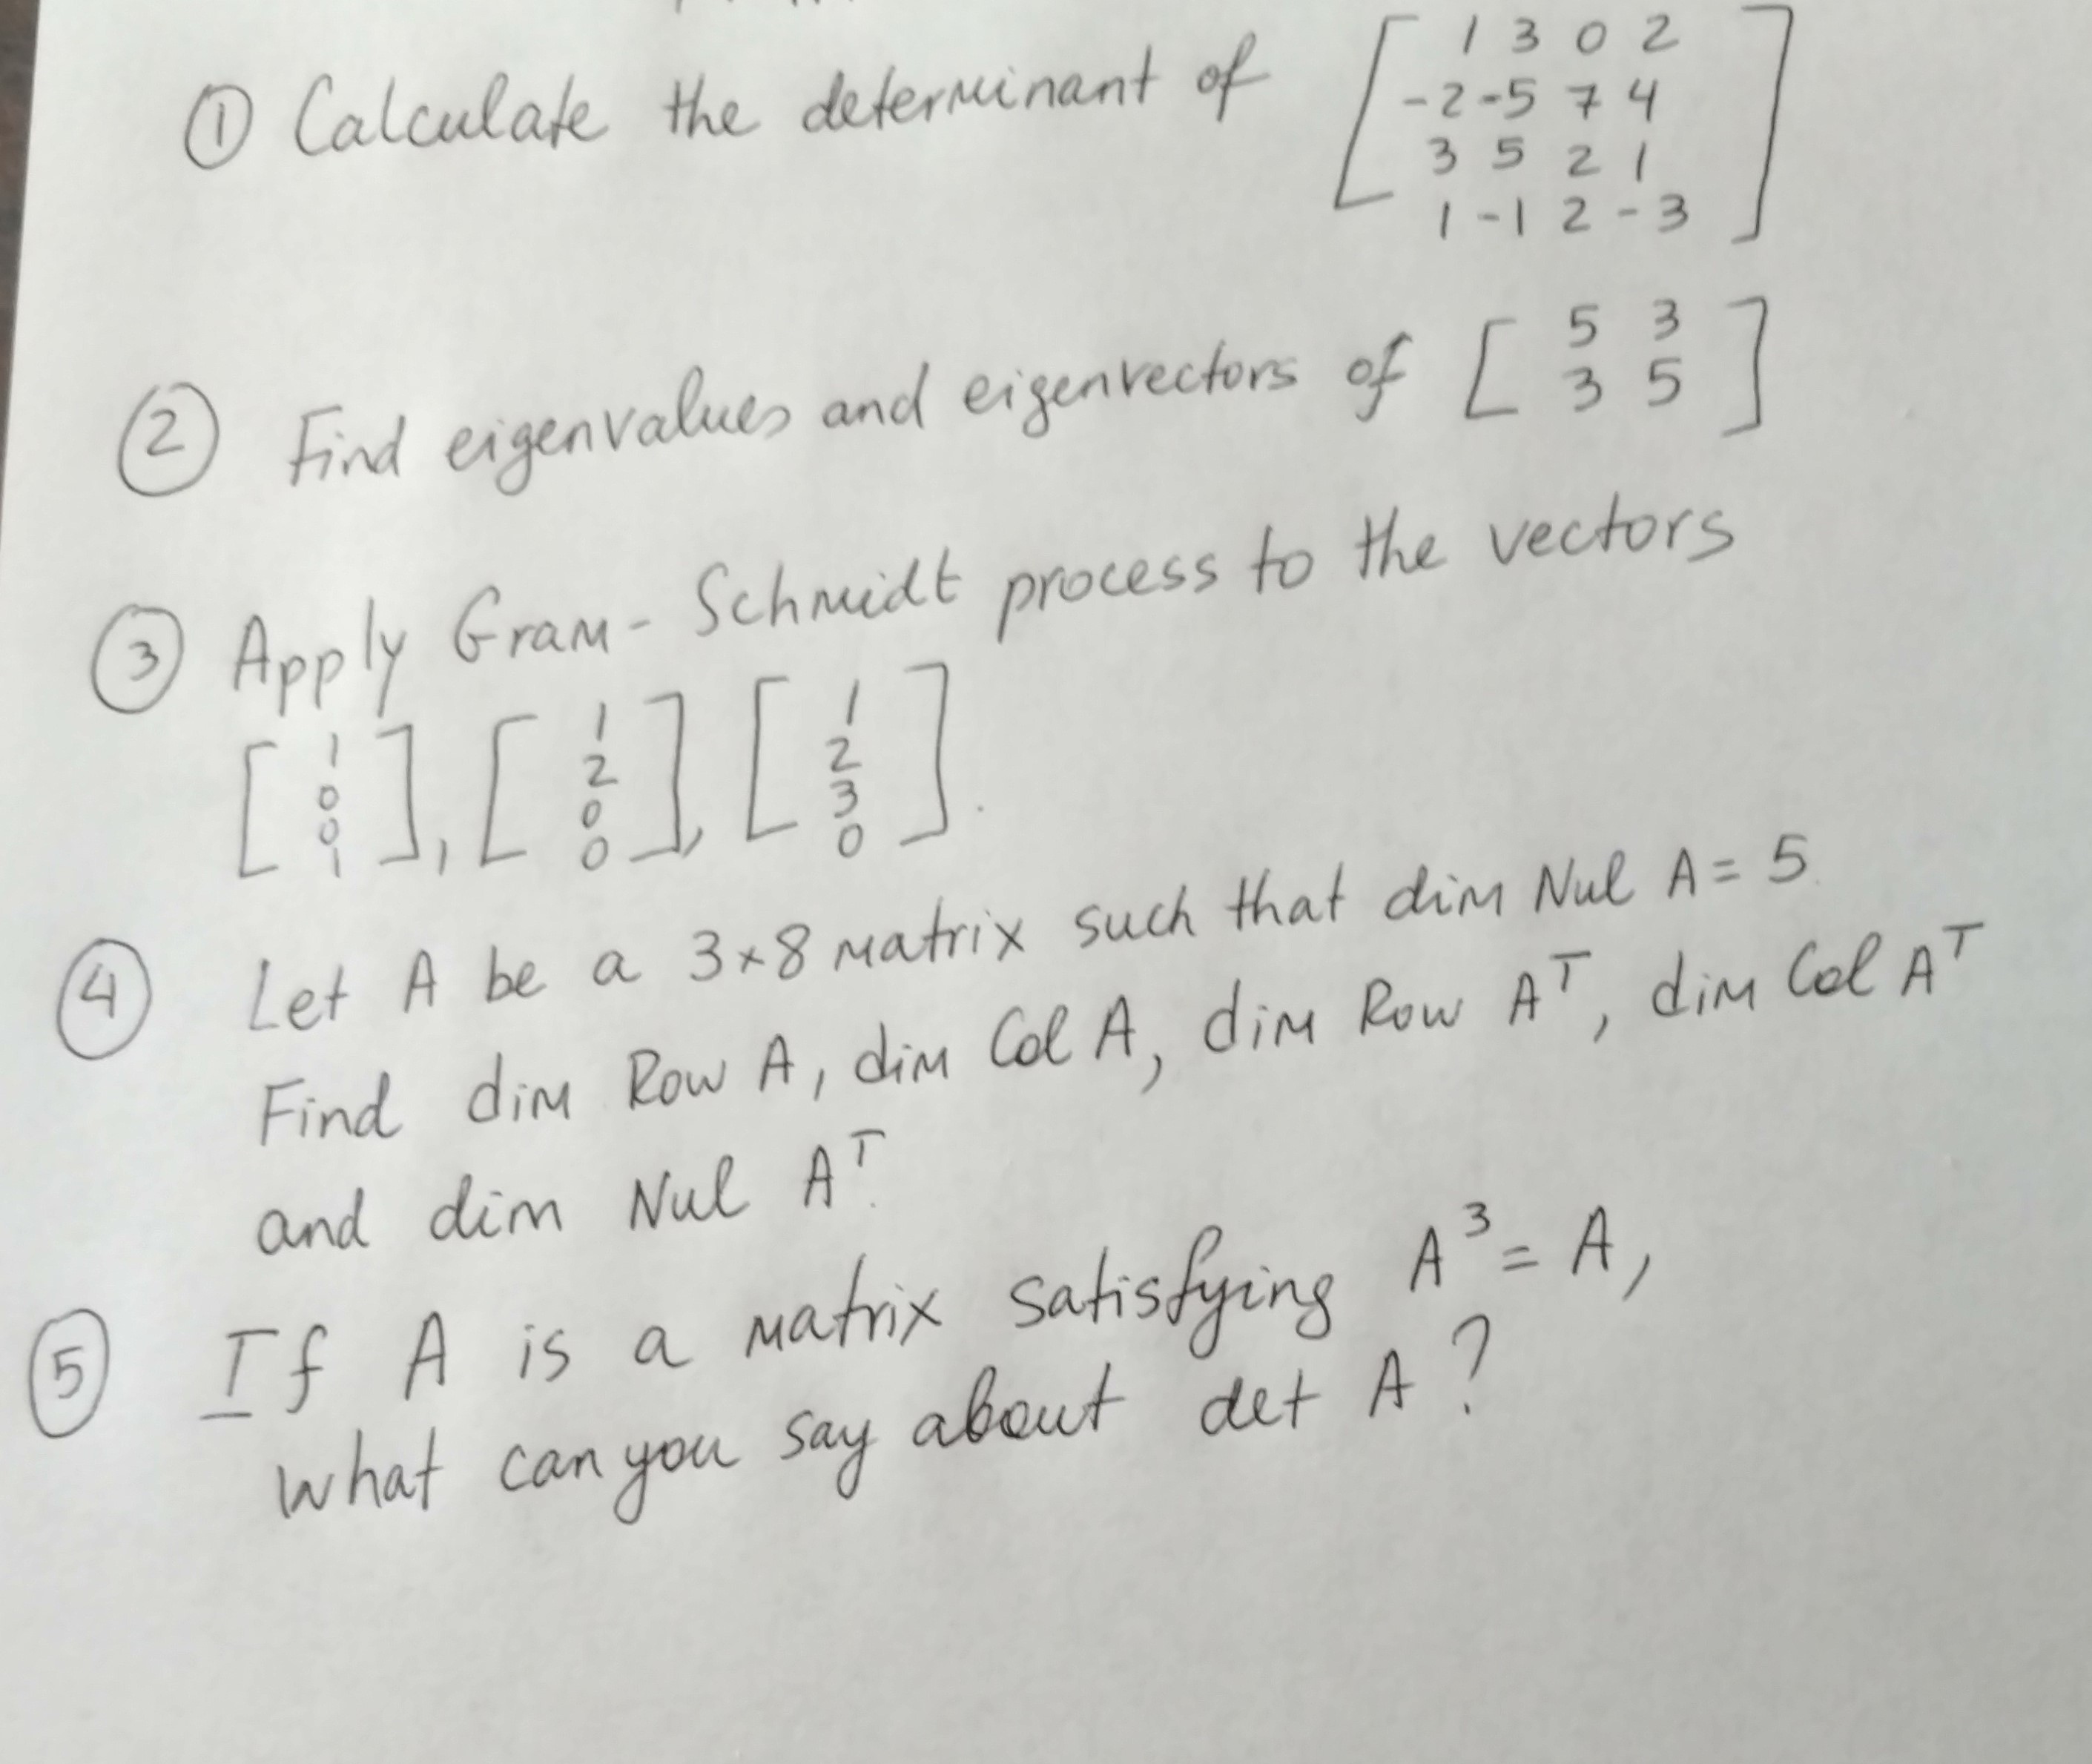 ① Calculate the determinant of [ 1 3 0 2
-2 -5 7 4
3 5 2 1
1 -1 2 -3 ]
② Find eigenvalues and eigenvectors of [ 5 3
3 5 ]
③ Apply Gram-Schmidt process to the vectors
[ 1 0 0 1 ], [ 1 2 0 0 ], [ 1 2 3 0 ].
④ Let A be a 3×8 matrix such that dim Nul A = 5.
Find dim Row A, dim Col A, dim Row Aᵀ, dim Col Aᵀ
and dim Nul Aᵀ.
⑤ If A is a matrix satisfying A³ = A,
what can you say about det A?